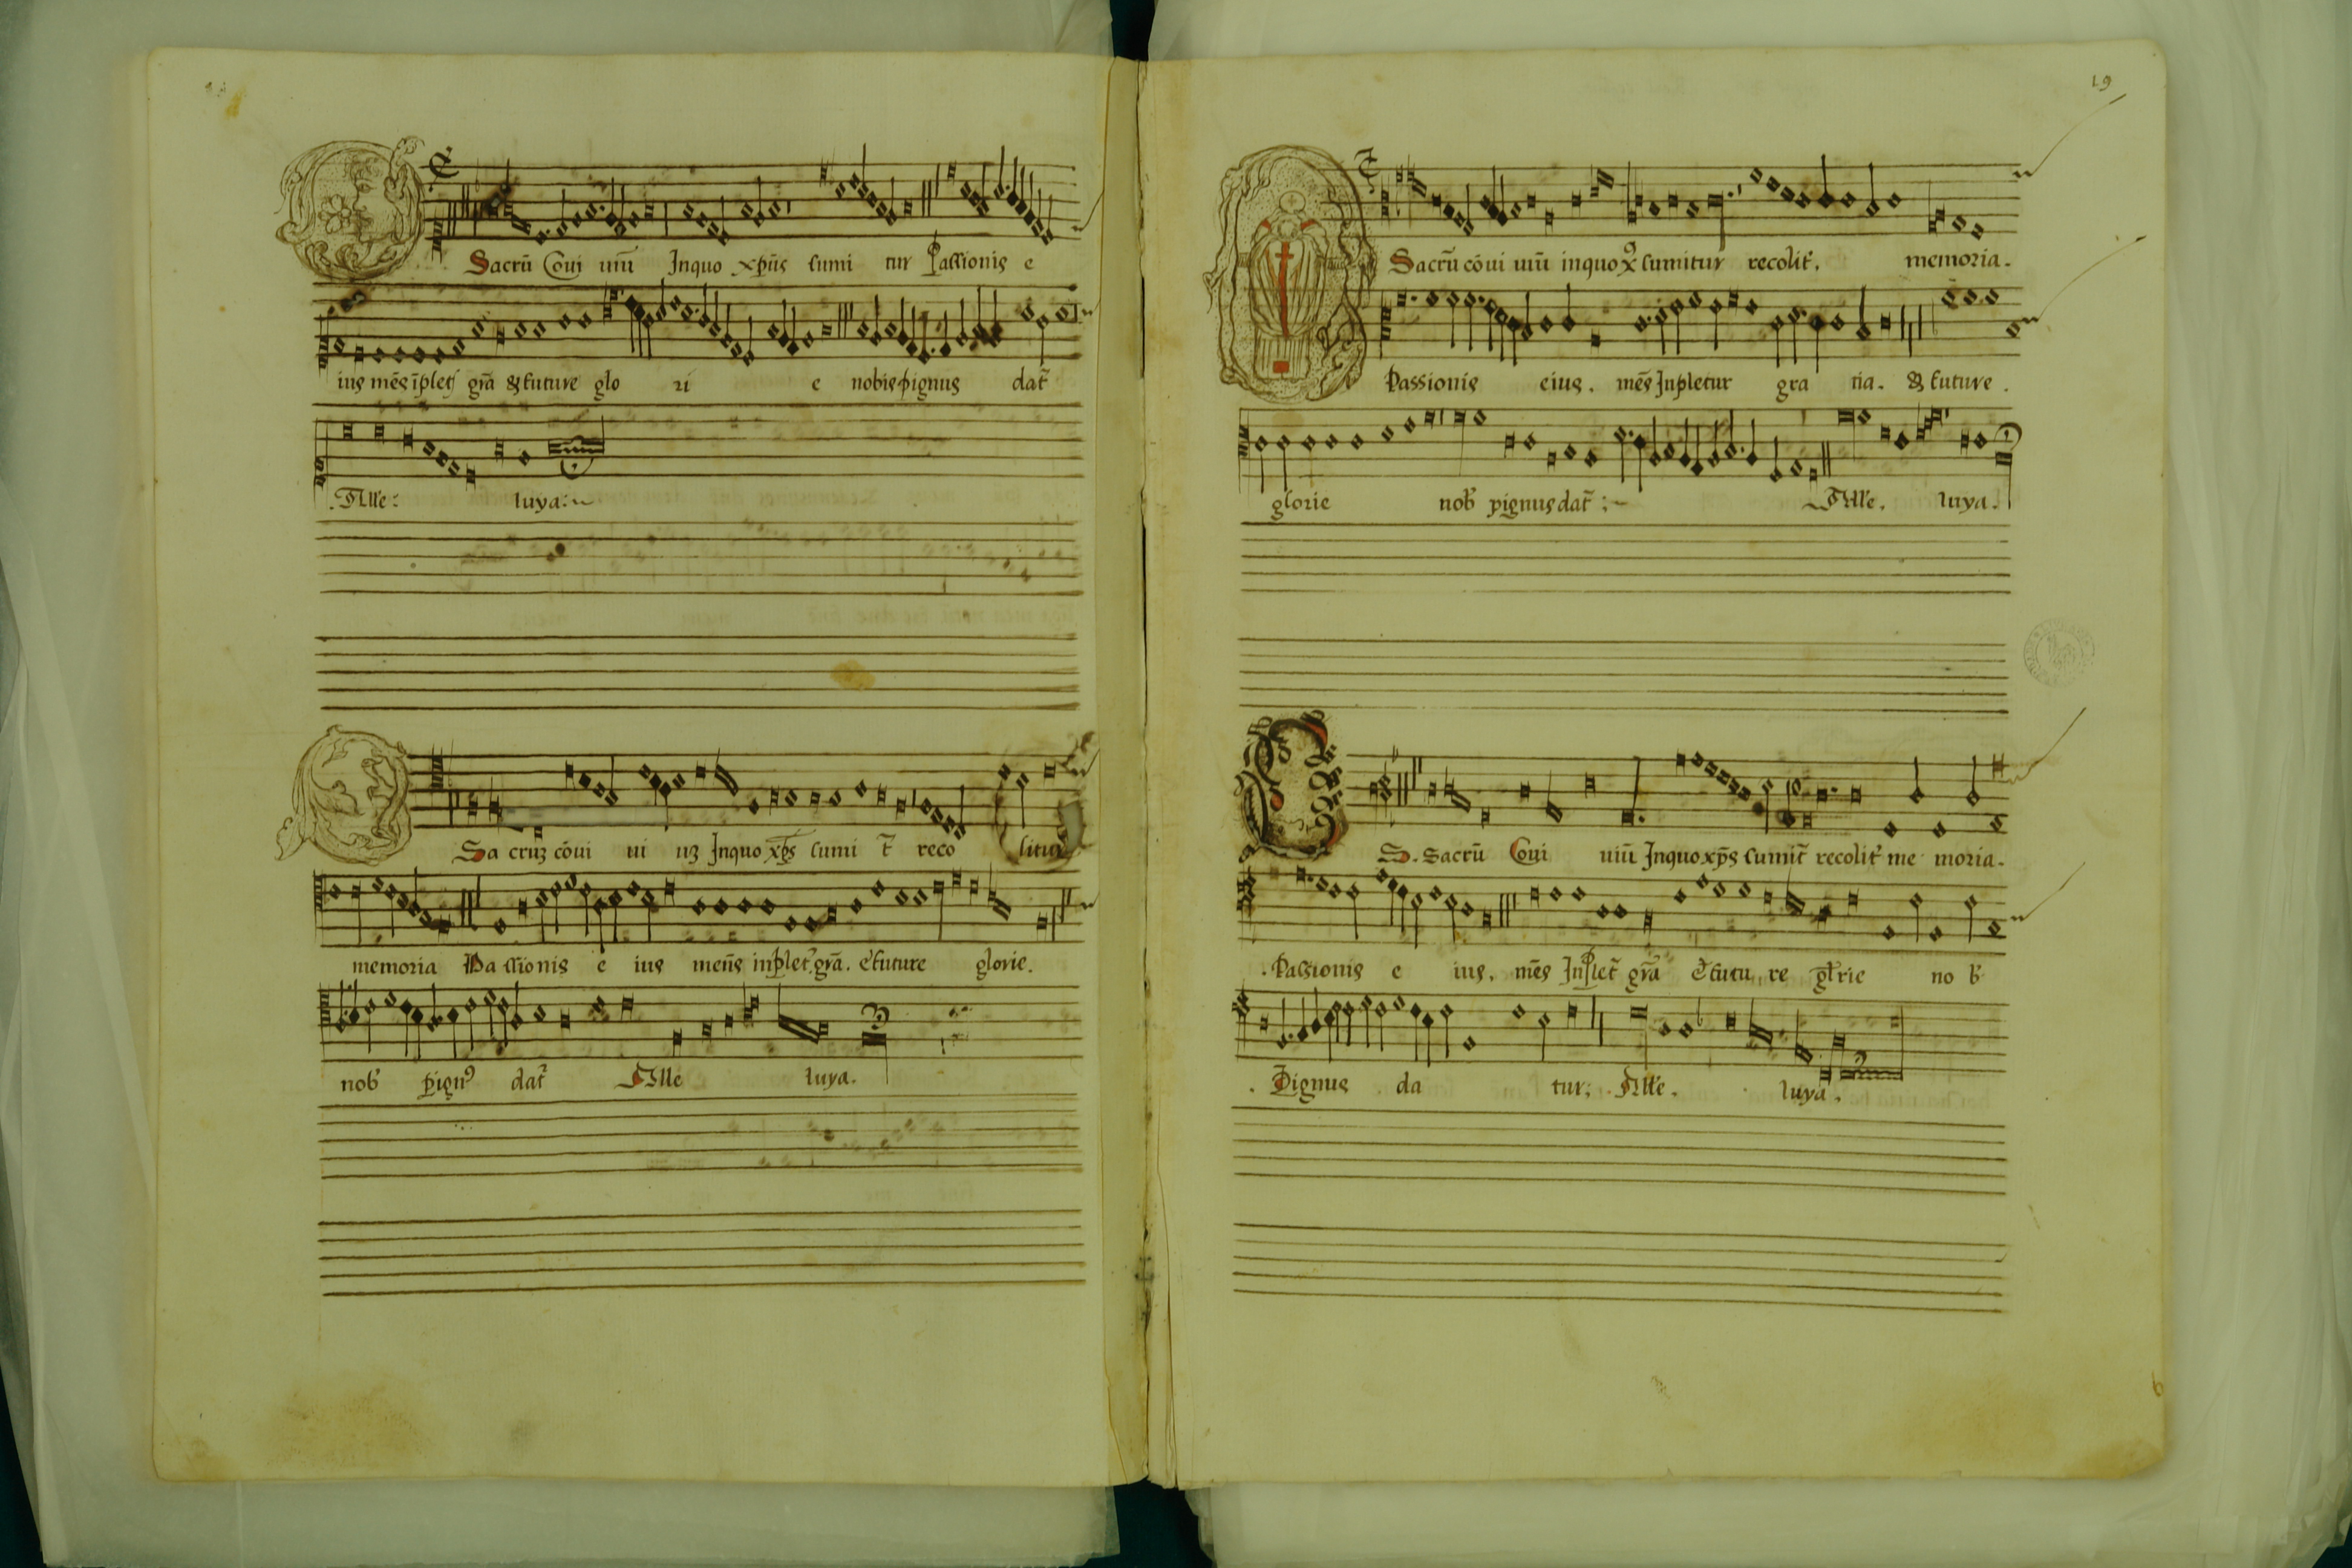 O
Sacrū Cōui uiū Inquo xp̄us sumi tur Passionis e
ius mēs īplet̄ grā & future glo ri e nobis pignus dat̄
Alle: luya:
O
Sa cruʒ cōui ui uʒ Inquo xp̄s sumi t̄ reco litur
memoria Pa ssionis e ius mens inplet̄ grā. & future glorie.
nob̄ pignꝰ dat̄ Alle luya.
19
O
T
Sacrū cōui uiū inquo x̄ sumitur recolit̄. memoria.
Passionis eius. mēs Inpletur gra tia. & future.
glorie nob̄ pignus dat̄: Alle. luya.
S. Sacrū Cōui uiū Inquo xp̄s sumit̄ recolit̄ me moria.
.Passionis e ius. mēs Inplet̄ grā & futu re glrie no b̄
. Pignus da tur; .Alle. luya.